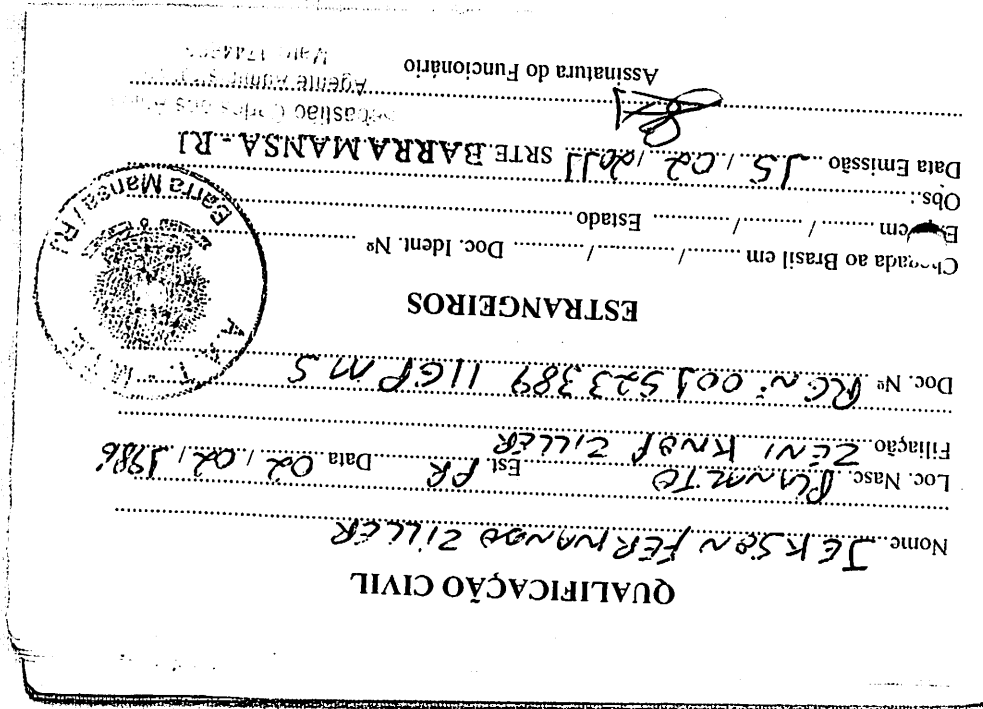 QUALIFICAÇÃO CIVIL
Nome JEKSON FERNANDO ZILLER
Loc. Nasc. PLANALTO Est. PR Data 02 / 02 / 1986
Filiação ZENI KNOP ZILLER
Doc. Nº RG Nº 001523389 IIGP MS
ESTRANGEIROS
Chegada ao Brasil em ......... / ......... / ......... Doc. Ident. Nº
Exp. em ......... / ......... / ......... Estado
Obs.:
Data Emissão 15 / 02 / 2011 SRTE BARRA MANSA - RJ
Sebastião Carlos dos
Agente
Assinatura do Funcionário
Barra Mansa / RJ